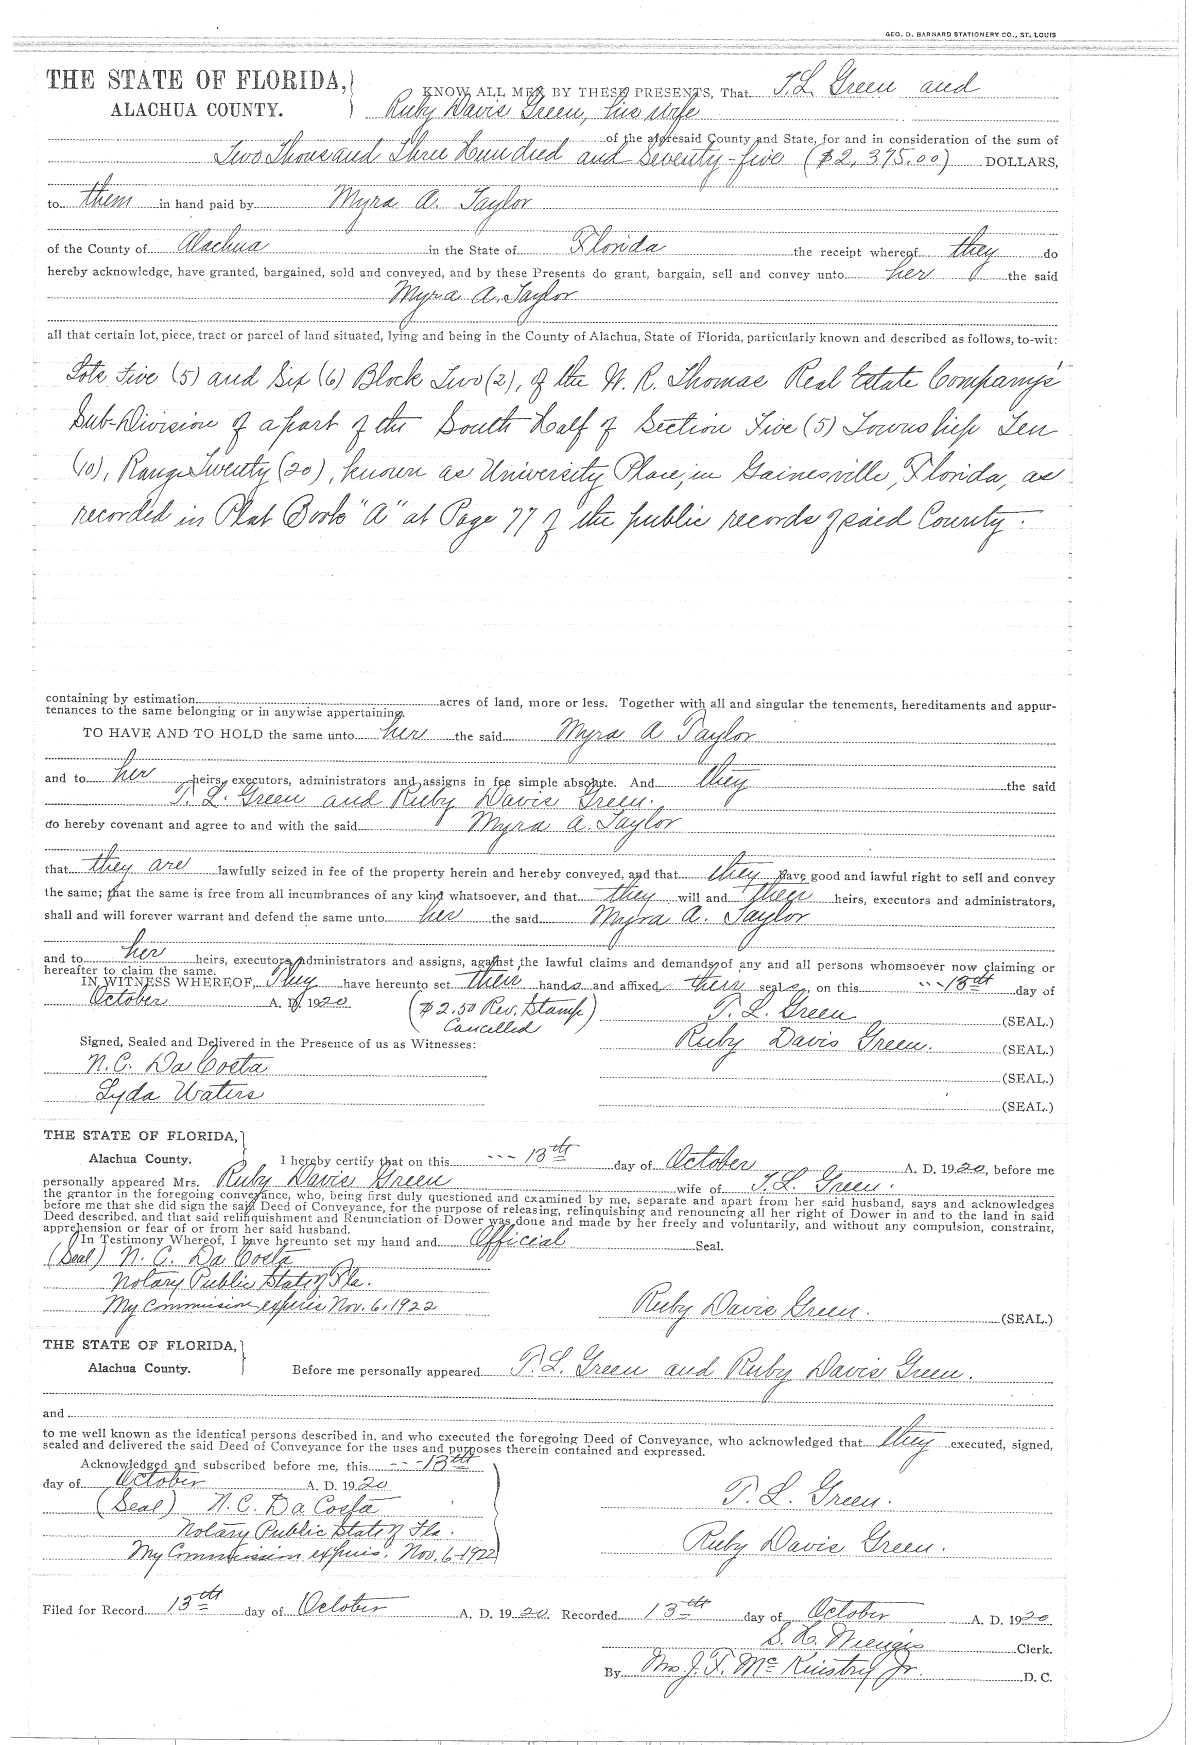 GEO. D. BARNARD STATIONERY CO., ST. LOUIS
THE STATE OF FLORIDA,
ALACHUA COUNTY.
KNOW ALL MEN BY THESE PRESENTS, That T. L. Green and
Ruby Davis Green, his wife
of the aforesaid County and State, for and in consideration of the sum of
Two Thousand Three Hundred and Seventy-five ($2,375.00) DOLLARS,
to them in hand paid by Myra A. Taylor
of the County of Alachua in the State of Florida the receipt whereof they do
hereby acknowledge, have granted, bargained, sold and conveyed, and by these Presents do grant, bargain, sell and convey unto her the said
Myra A. Taylor
all that certain lot, piece, tract or parcel of land situated, lying and being in the County of Alachua, State of Florida, particularly known and described as follows, to-wit:
Lots Five (5) and Six (6) Block Two (2), of the W. R. Thomas Real Estate Company's
Sub-Division of a part of the South Half of Section Five (5) Township Ten
(10), Range Twenty (20), known as University Place, in Gainesville, Florida, as
recorded in Plat Book "A" at Page 77 of the public records of said County.
containing by estimation acres of land, more or less. Together with all and singular the tenements, hereditaments and appur-
tenances to the same belonging or in anywise appertaining.
TO HAVE AND TO HOLD the same unto her the said Myra A Taylor
and to her heirs, executors, administrators and assigns in fee simple absolute. And they the said
T. L. Green and Ruby Davis Green.
do hereby covenant and agree to and with the said Myra A. Taylor
that they are lawfully seized in fee of the property herein and hereby conveyed, and that they have good and lawful right to sell and convey
the same; that the same is free from all incumbrances of any kind whatsoever, and that they will and their heirs, executors and administrators,
shall and will forever warrant and defend the same unto her the said Myra A. Taylor
and to her heirs, executors, administrators and assigns, against the lawful claims and demands of any and all persons whomsoever now claiming or
hereafter to claim the same.
IN WITNESS WHEREOF, They have hereunto set their hands and affixed their seals, on this ---13th day of
October A. D. 1920 ($2.50 Rev. Stamp T. L. Green (SEAL.)
Cancelled)
Signed, Sealed and Delivered in the Presence of us as Witnesses: Ruby Davis Green. (SEAL.)
N. C. Da Costa (SEAL.)
Lyda Waters (SEAL.)
THE STATE OF FLORIDA,
Alachua County. I hereby certify that on this --- 13th day of October A. D. 1920, before me
personally appeared Mrs. Ruby Davis Green wife of T. L. Green.
the grantor in the foregoing conveyance, who, being first duly questioned and examined by me, separate and apart from her said husband, says and acknowledges
before me that she did sign the said Deed of Conveyance, for the purpose of releasing, relinquishing and renouncing all her right of Dower in and to the land in said
Deed described, and that said relinquishment and Renunciation of Dower was done and made by her freely and voluntarily, and without any compulsion, constraint,
apprehension or fear of or from her said husband.
In Testimony Whereof, I have hereunto set my hand and Official Seal.
(Seal) N. C. Da Costa
Notary Public State of Fla.
My Commission expires Nov. 6, 1922 Ruby Davis Green. (SEAL.)
THE STATE OF FLORIDA,
Alachua County. Before me personally appeared T. L. Green and Ruby Davis Green.
and
to me well known as the identical persons described in, and who executed the foregoing Deed of Conveyance, who acknowledged that they executed, signed,
sealed and delivered the said Deed of Conveyance for the uses and purposes therein contained and expressed.
Acknowledged and subscribed before me, this ---13th
day of October A. D. 1920
(Seal) N. C. Da Costa T. L. Green.
Notary Public State of Fla.
My Commission expires. Nov. 6-1922 Ruby Davis Green.
Filed for Record 13th day of October A. D. 1920. Recorded 13th day of October A. D. 1920
S. H. Wienges Clerk.
By Mrs J. F. McKinstry Jr. D. C.